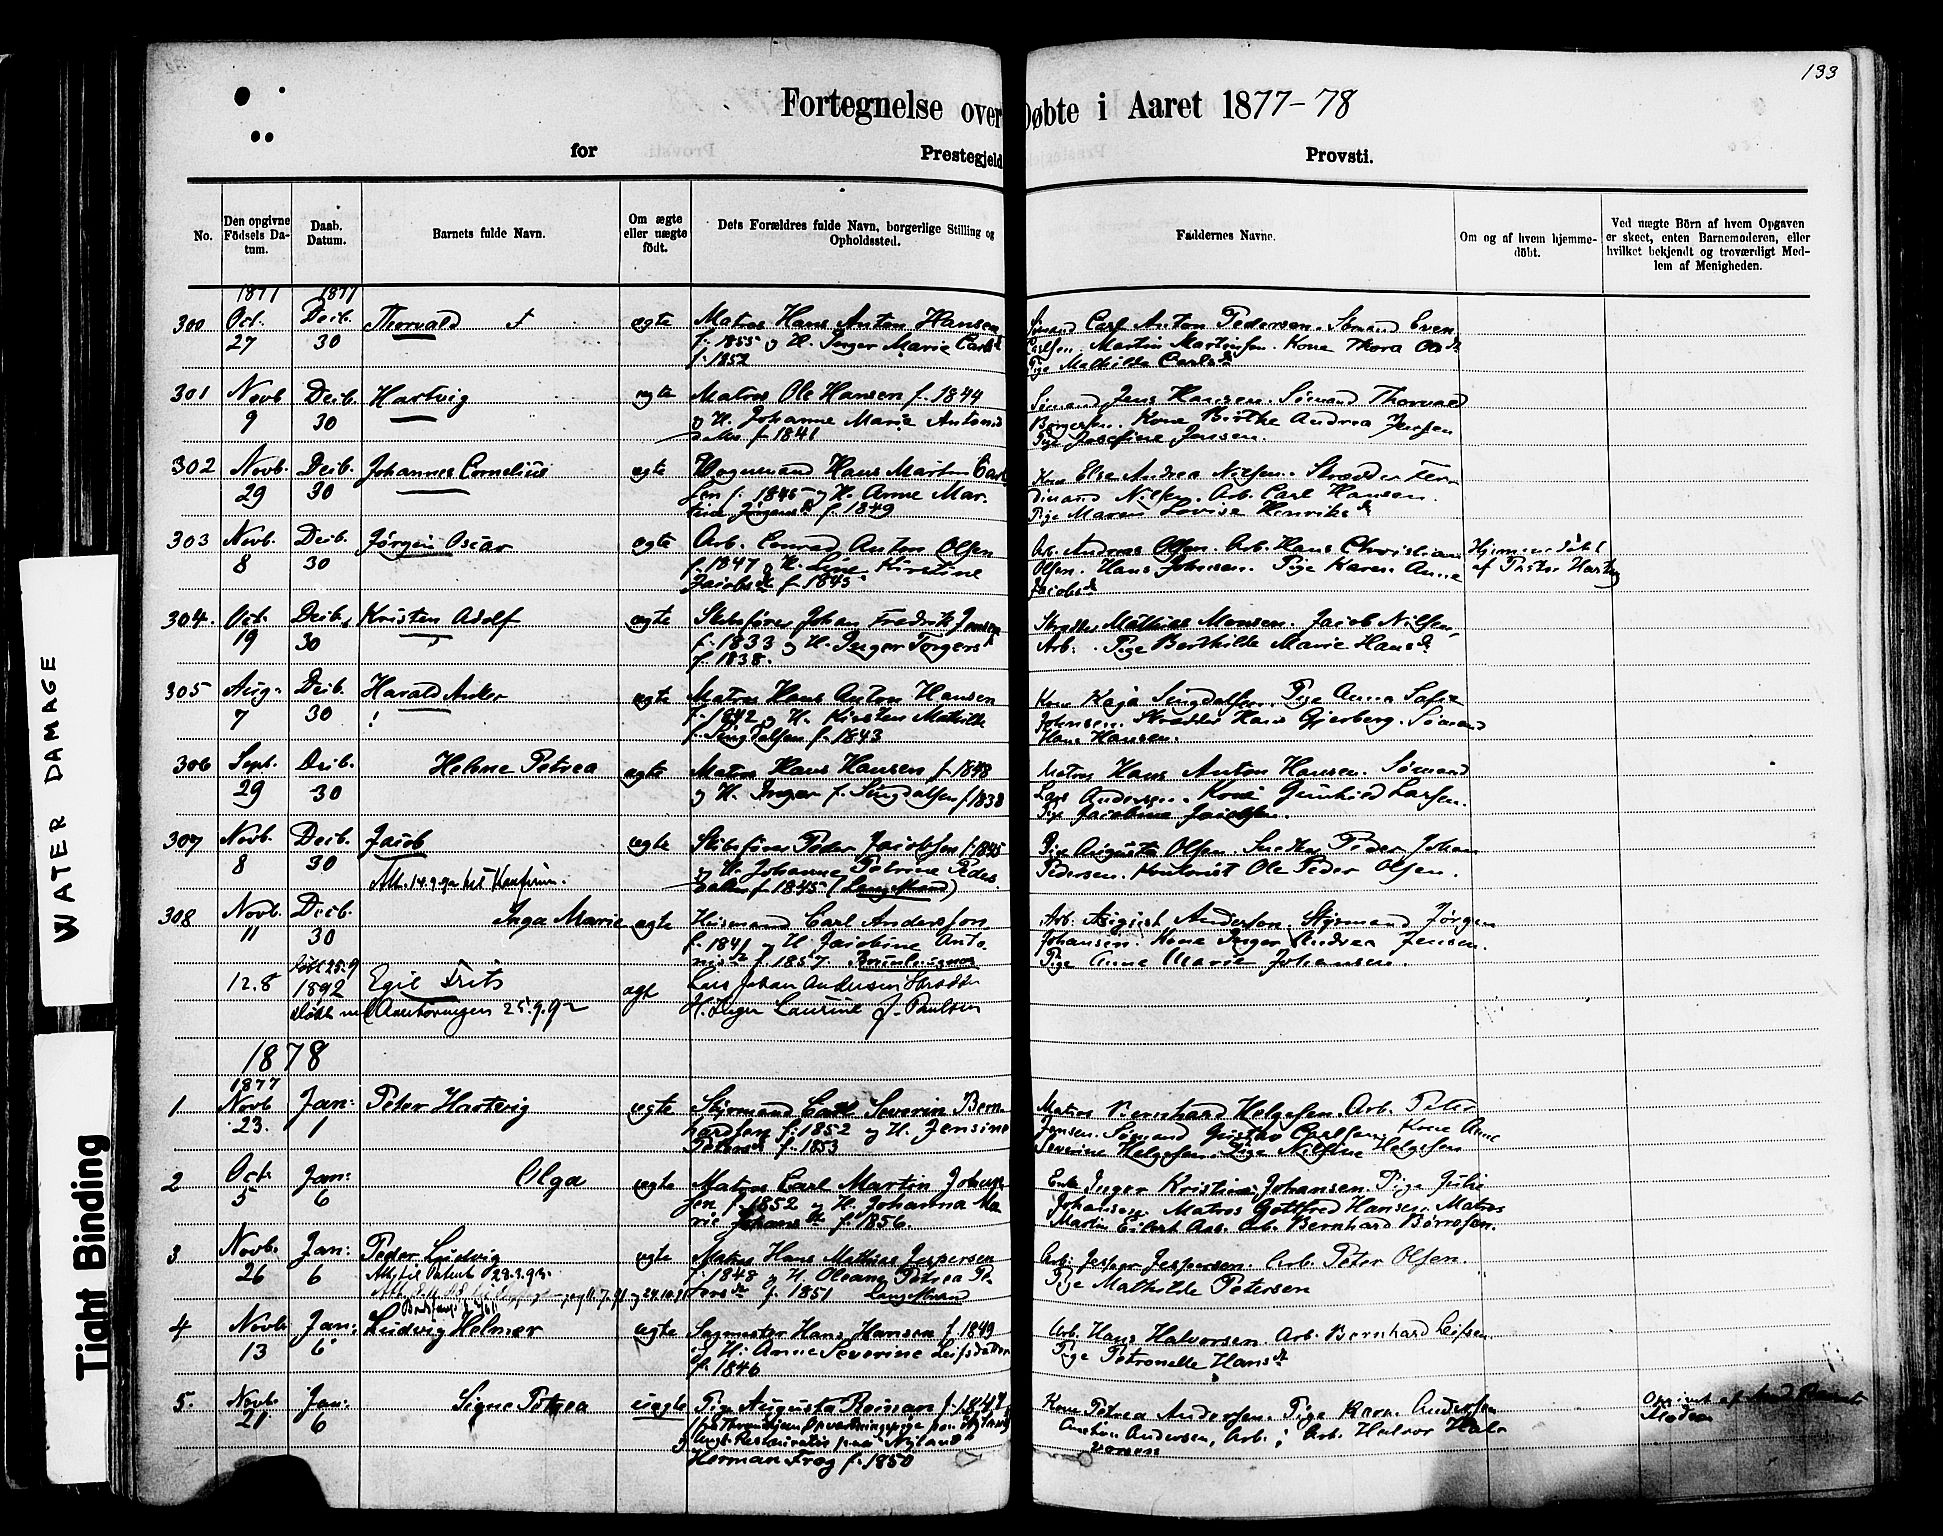 133
Fortegnelse over Døbte i Aaret 1877-78
for Prestegjeld Provsti.
No.
Den opgivne Födsels Da-tum.
Daab. Datum.
Barnets fulde Navn.
Om ægte eller uægte födt.
Dets Forældres fulde Navn, borgerlige Stilling og Opholdssted.
Faddernes Navne.
Om og af hvem hjemme-döbt.
Ved uægte Börn af hvem Opgaven er skeet, enten Barnemoderen, eller hvilket bekjendt og troværdigt Med-lem af Menigheden.
1877 1877
300 Oct. Decb. Thorvald ægte Matros Hans Anton Hansen Sømand Carl Anton Pedersen. Sømand Even
27 30 f. 1855 og H. Inger Marie Carlsd. Carlsen. Martin Martinsen. Kone Thora
f. 1852 Pige Mathilde Carlsd.
301 Novb. Decb. Hartvig ægte Matros Ole Hansen f. 1844 Sømand Jens Hansen. Sømand Thorvald
9 30 og H. Johanne Marie Antonis Kone Birthe Andrea Jensen
datter f. 1841 Pige Josefine Jensen.
302 Novb. Decb. Johannes Cornelius ægte Vognmand Hans Martin Carl Kone Else Andrea Nielsen. Skrædder Fer
29 30 sen f. 1845 og H. Anne Mar- dinand Nilsen. Arb. Carl Hansen.
f. 1849 Pige Maren Lovise Henriksd.
303 Novb. Decb. Jørgen Oscar ægte Arb. Conrad Anton Olsen Arb. Andreas Olsen. Arb. Hans Christian Hjemmedøbt
8 30 f. 1847 og H. Lene Kirstine Olsen. Hans Johnsen. Pige Karen Anne af Pastor Hartvig
Jacobsd. f. 1845 Jacobsd.
304. Oct. Decb. Kristen Adolf ægte Skibsfører Johan Fredrik Jensen Skrædder Mathias Monsen. Jacob Nilsen,
19 30 f. 1833 og H. Inger Torgersd. Arb. Pige Berthilde Marie Hansd.
f. 1838.
305 Aug. Decb. Harald Anker ægte Matros Hans Anton Hansen Kone Kaja Singdalsen. Pige Anna Sofie
7 30 f. 1842 og H. Kirsten Mathilde Johnsen. Skrædder Hans Gjerberg. Sømand
f. Singdalsen f. 1843 Hans Hansen.
306 Sept. Decb. Helene Petrea ægte Matros Hans Hansen f. 1848 Matros Hans Anton Hansen. Sømand
29 30 og H. Inger f. Singdalsen f. 1838 Lars Andersen. Kone Gunhild Larsen.
Pige Jacobine Jacobsen.
307 Novb. Decb. Jacob ægte Skibsfører Peder Jacobsen f. 1845 Pige Augusta Olsen. Snedker Peder Johan
8 30 og H. Johanne Petrine Peders Pedersen. Kontorist Ole Peder Olsen.
Att. 14.9.92 til Konfirm. datter f. 1845 (Langestrand)
308 Novb. Decb. Inga Marie ægte Husmand Carl Anderssen Arb. August Andersen. Styrmand Jørgen
11 30 f. 1841 og H. Jacobine Anto Johansen. Kone Inger Andrea Jensen.
nisd. f. 1857. Pige Anne Marie Johansen.
12.8 døbt 25.9 1892 Egil Frits ægt Lars Johan Andersen Skrædder
døbt ved Aanføringen 25.9.92 H. Inger Laurine f. Paulsen
1878
1877
1 Novb Jan: Peter Hartvig ægte Styrmand Carl Severin Bern Matros Bernhard Helgesen. Arb. Peter
23. 1 hardsen f. 1852 og H. Jensine Jensen. Sømand Gustav Carlsen. Kone Anne
Petersd. f. 1853 Severine Helgesen. Pige Nilsine Helgesen
2 Oct. Jan: Olga ægte Matros Carl Martin Johan Enke Inger Kristine Johansen. Pige Julie
5 6 sen f. 1852 og H. Johanna Ma Johansen. Matros Gottfred Hansen. Matros
rie Johansd. f. 1856. Martin Eilert Aas. Arb. Bernhard Børresen.
3 Novb. Jan: Peder Ludvig ægte Matros Hans Mathias Jespersen Arb. Jesper Jespersen. Arb. Peter Olsen.
26 6 Att. til Patent 23.3.93. f. 1848 og H. Oleane Petrea Pe Pige Mathilde Petersen
og 24.10.91 dersd. f. 1851 Langestrand
4 Novb Jan: Ludvig Helmer ægte Sagmester Hans Hansen f. 1849 Arb. Hans Halvorsen. Arb. Bernhard Leifsen
13 6 og H. Anne Severine Leifsdatter Pige Petronelle Hansd.
f. 1846
5. Novb. Jan: Signe Petrea uægte Pige Augusta Reiman f. 1847 Kone Petrea Andersen. Pige Karen Andersen Opgivet af
21 6 fra Throndhjem Opvartningspige paa Nyland Anton Andersen, Arb.; Arb. Halvor Hal Moder
og Ungk. Restauratør paa Nyland vorsen
Herman Frog f. 1850
WATER DAMAGE
Tight Binding